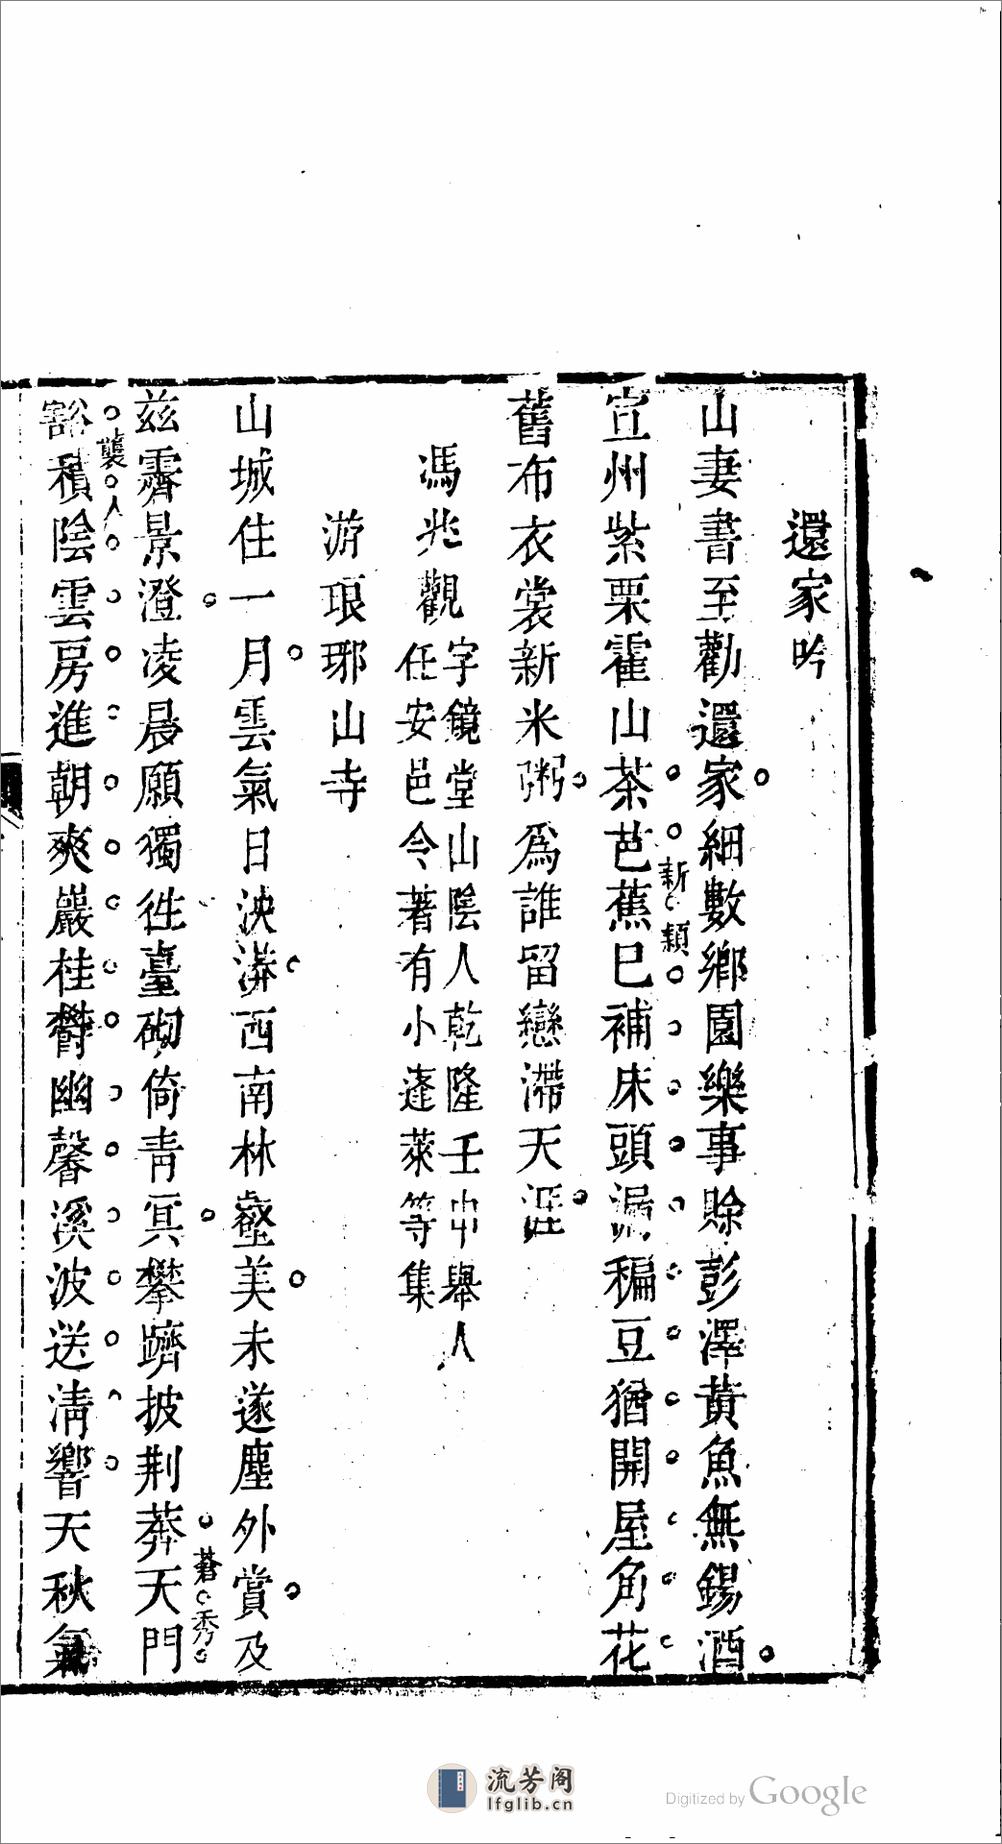 還家吟
山妻書至勸還家細數鄉園樂事賒彭澤黃魚無錫酒
宣州紫栗霍山茶芭蕉已補床頭漏稨豆猶開屋角花
新穎
舊布衣裳新米粥爲誰留戀滯天涯
馮兆觀
字鏡堂山陰人乾隆壬申舉人
任安邑令著有小蓬萊等集
游琅琊山寺
山城住一月雲氣日泱漭西南林壑美未遂塵外賞及
蒼秀
茲霽景澄凌晨願獨往臺砌倚青冥攀躋披荆莽天門
襲人
豁積陰雲房進朝爽巖桂欝幽馨溪波送清響天秋氣
流芳阁
lfglib.cn
Digitized by Google